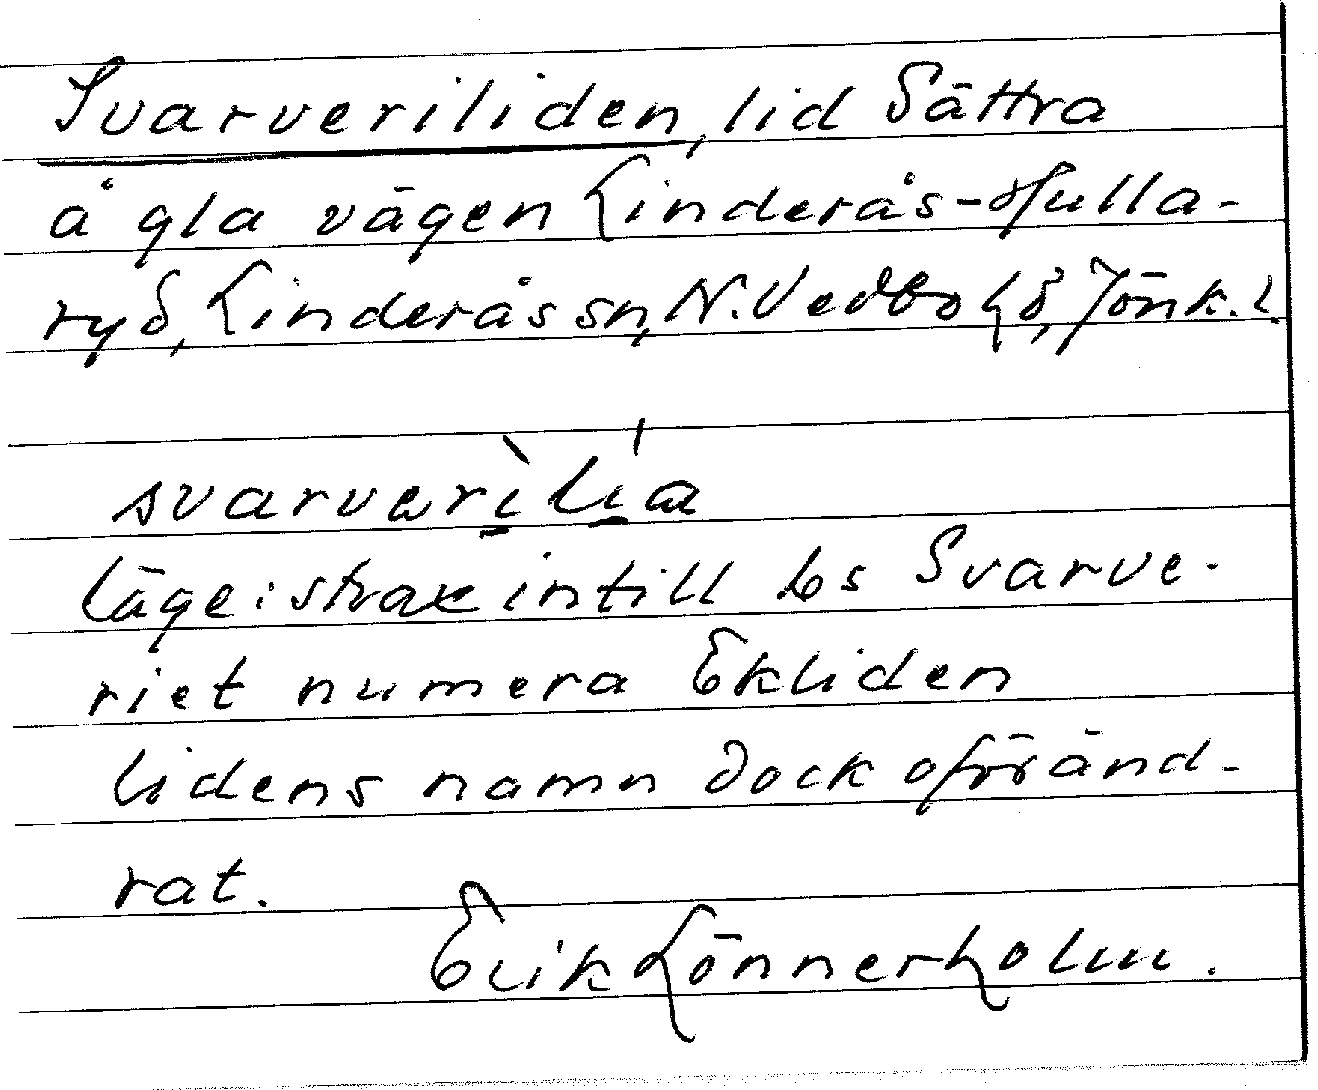 Svarveriliden, lid Sättra
å gla vägen Linderås-Hulla-
ryd, Linderås sn, N. Vedbo hd, Jönk. l.
svarværì̠ lí̠a
läge: strax intill ls Svarve-
riet numera Ekliden
lidens namn dock oföränd-
rat.
Erik Lönnerholm.